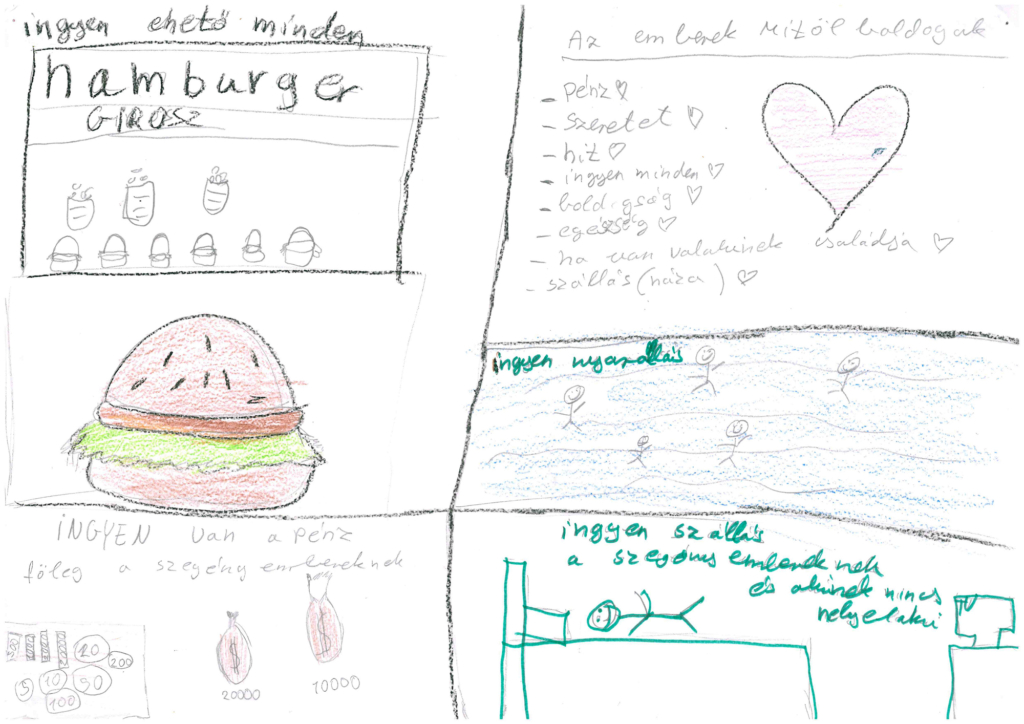 ingyen ehető minden
hamburger
GIROSZ
Az emberek mitől boldogak
- pénz
- szeretet
- hit
- ingyen minden
- boldogság
- egészség
- ha van valakinek családja
- szállás (háza)
ingyen nyarallás
INGYEN van a pénz
főleg a szegény embereknek
500
10
200
5
10
50
100
$
$
20000
10000
ingyen szállás
a szegény embereknek
és akinek nincs
helyelakni
TV